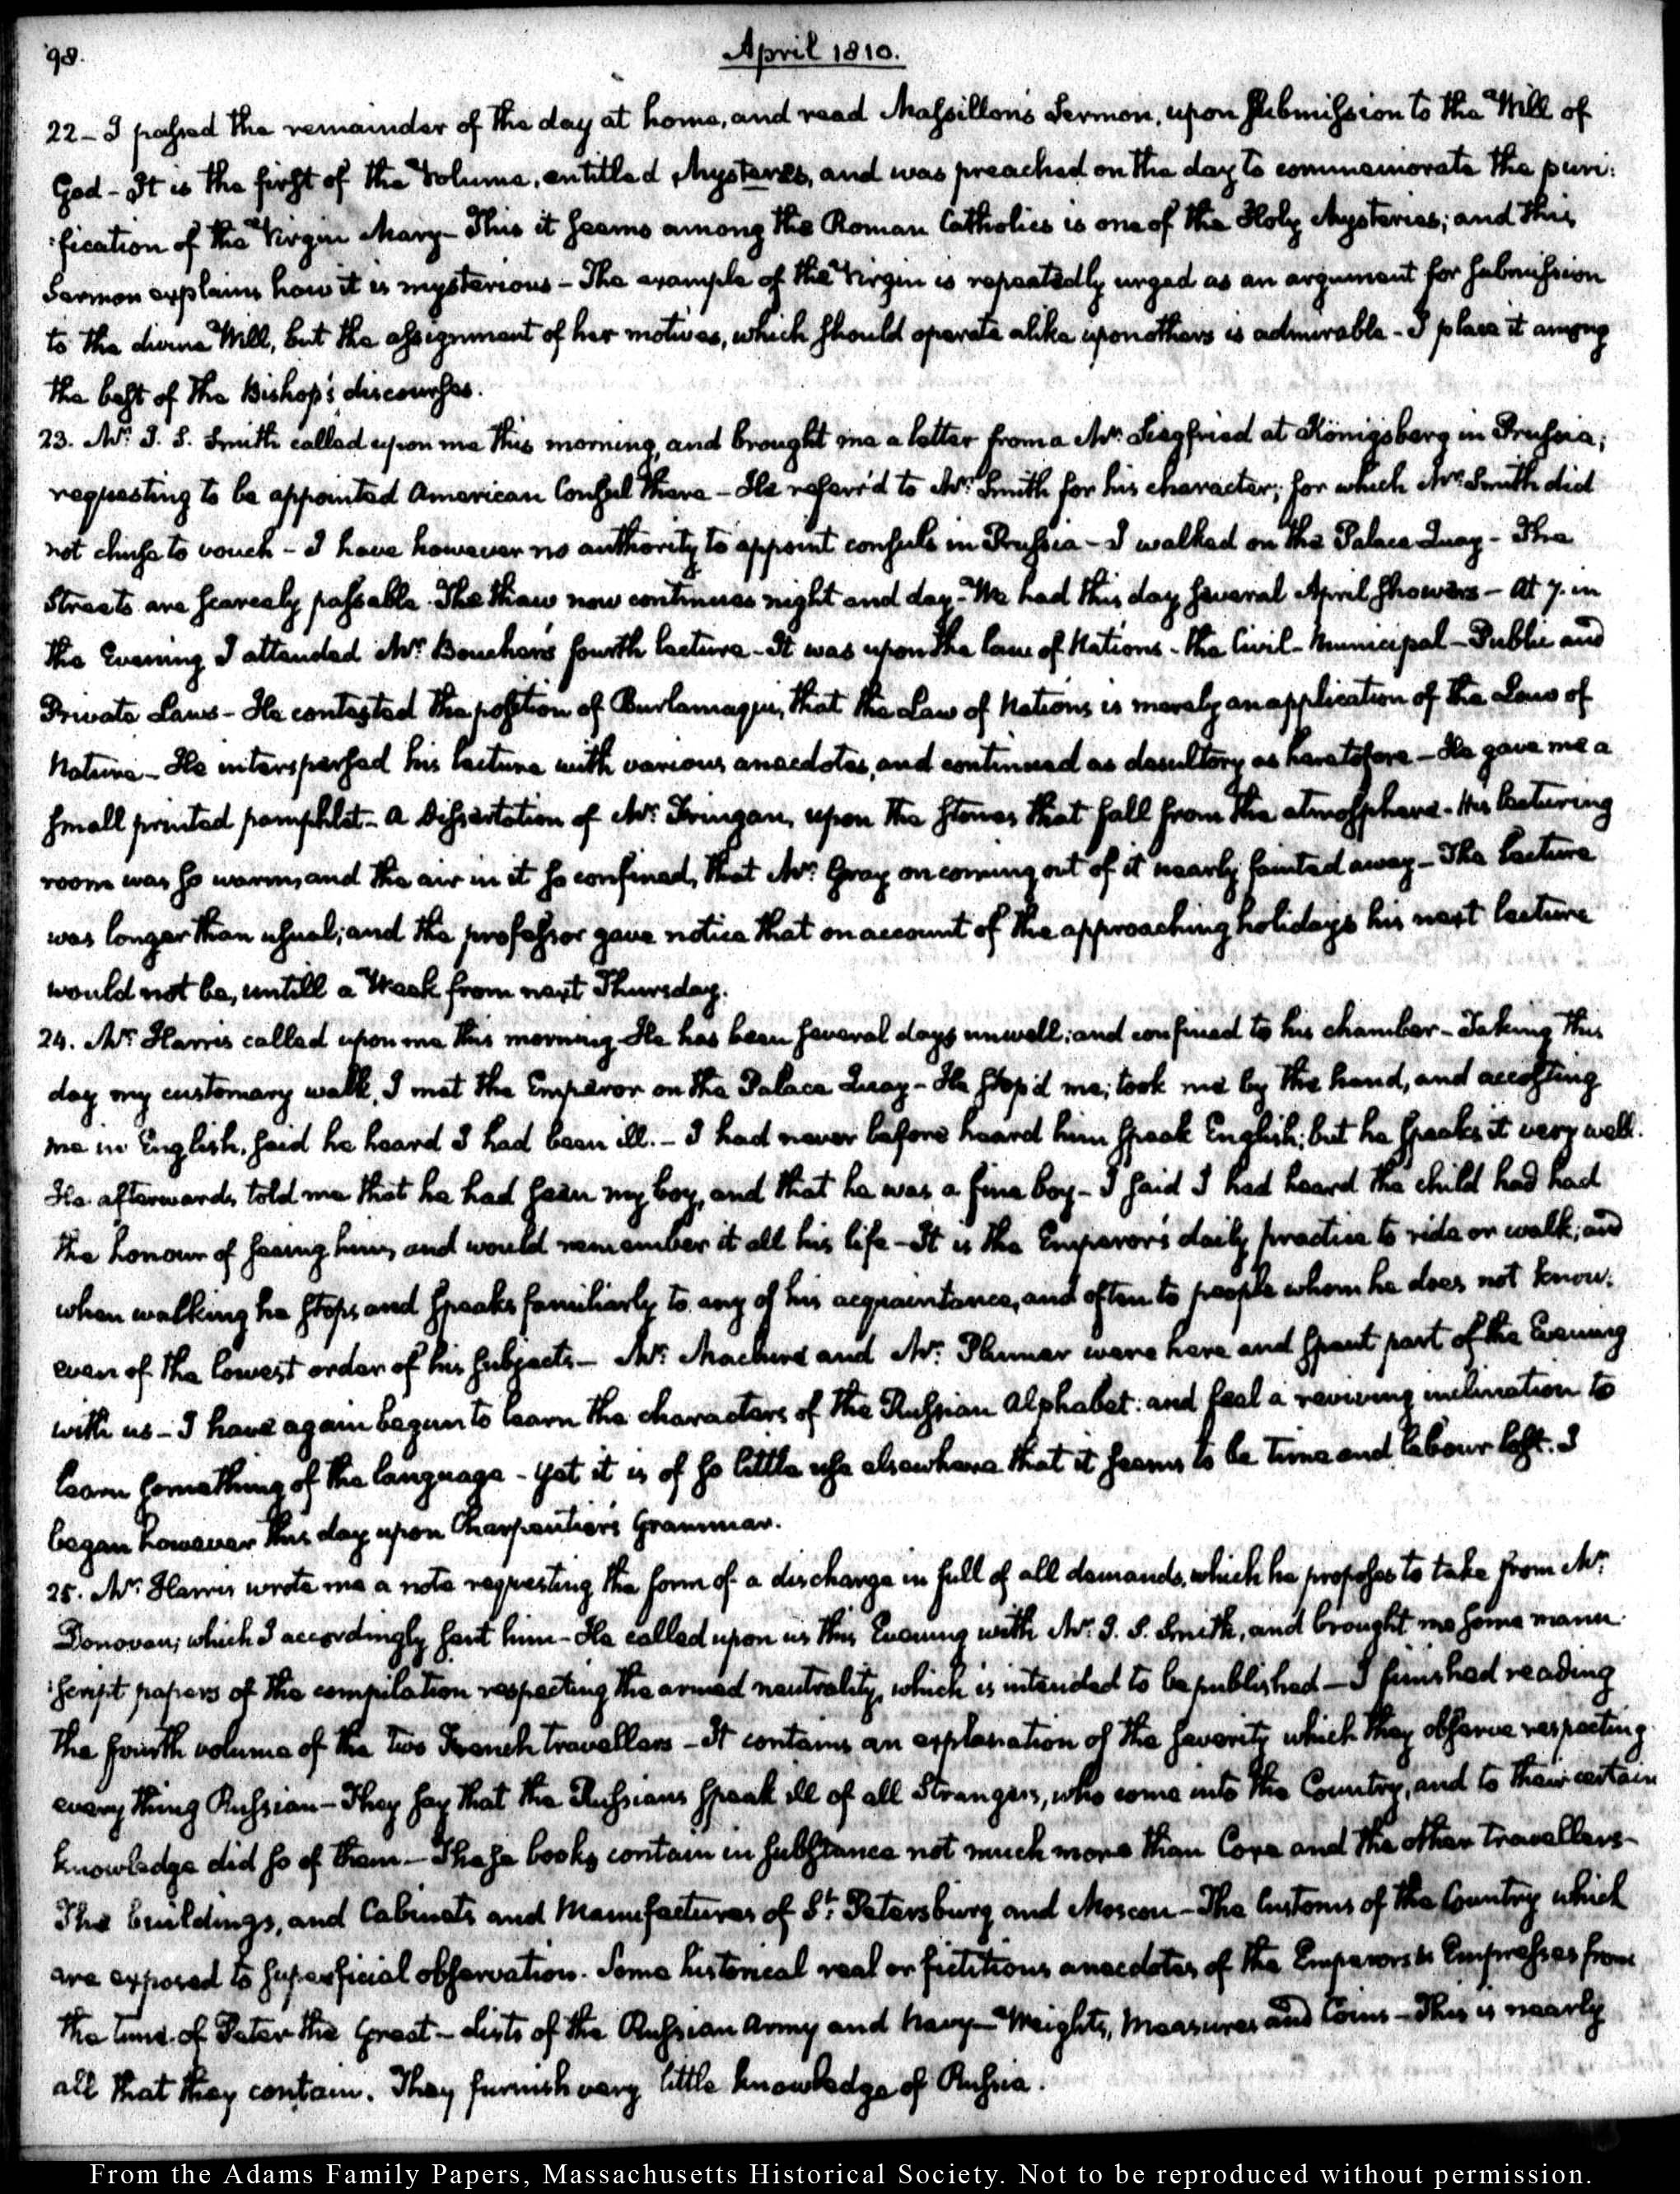 98.
April 1810.
22 - I passed the remainder of the day at home, and read Massillon's Sermon, upon Submission to the Will of
God - It is the first of the Volume, entitled Mysteres, and was preached on the day to commemorate the puri:
:fication of the Virgin Mary - This it seems among the Roman Catholics is one of the Holy Mysteries; and this
Sermon explains how it is mysterious - The example of the Virgin is repeatedly urged as an argument for submission
to the divine Will, but the assignment of her motives, which should operate alike upon others is admirable - I place it among
the best of the Bishop's discourses.
23. Mr. J. S. Smith called upon me this morning, and brought me a letter from a Mr. Siegfried at Königsberg in Prussia,
requesting to be appointed American Consul there - He referr'd to Mr. Smith for his character; for which Mr. Smith did
not chuse to vouch - I have however no authority to appoint consuls in Prussia - I walked on the Palace Quay - The
Streets are scarcely passable. The thaw now continues night and day - We had this day several April showers - At 7. in
the Evening I attended Mr. Bouchers fourth lecture - It was upon the law of Nations - the Civil - Municipal - Public and
Private Laws - He contested the position of Burlamaqui, that the Law of Nations is merely an application of the Law of
Nature - He interspersed his lecture with various anecdotes, and continued as desultory as heretofore - He gave me a
small printed pamphlet - A Dissertation of Mr. Fringan, upon the stones that fall from the atmosphere - His lecturing
room was so warm, and the air in it so confined, that Mr. Gray on coming out of it nearly fainted away - The lecture
was longer than usual; and the professor gave notice that on account of the approaching holidays his next lecture
would not be, untill a Week from next Thursday.
24. Mr. Harris called upon me this morning. He has been several days unwell; and confined to his chamber - Taking this
day my customary walk, I met the Emperor on the Palace Quay - He stop'd me; took me by the hand, and accosting
me in English, said he heard I had been ill. - I had never before heard him speak English; but he speaks it very well.
He afterwards told me that he had seen my boy, and that he was a fine boy - I said I had heard the child had had
the honour of seeing him, and would remember it all his life - It is the Emperor's daily practice to ride or walk; and
when walking he stops and speaks familiarly to any of his acquaintance, and often to people whom he does not know:
even of the lowest order of his subjects - Mr. Maclure and Mr. Plumer were here and spent part of the Evening
with us - I have again begun to learn the characters of the Russian Alphabet: and feel a reviving inclination to
learn something of the language - Yet it is of so little use elsewhere that it seems to be time and labour lost. I
began however this day upon Charpentier's Grammar.
25. Mr. Harris wrote me a note requesting the form of a discharge in full of all demands, which he proposes to take from Mr.
Donovan; which I accordingly sent him - He called upon us this Evening with Mr. J. S. Smith, and brought me some manu
:script papers of the compilation respecting the armed neutrality, which is intended to be published - I finished reading
the fourth volume of the two French travellers - It contains an explanation of the severity which they observe respecting
every thing Russian - They say that the Russians speak ill of all Strangers, who come into the Country, and to their certain
knowledge did so of them - These books contain in substance not much more than Coxe and the other travellers -
The buildings, and Cabinets and Manufactures of St. Petersburg and Moscow - The Customs of the Country which
are exposed to superficial observation. Some historical real or fictitious anecdotes of the Emperors & Empresses from
the time of Peter the Great - Lists of the Russian Army and Navy - Weights, Measures and Coins - This is nearly
all that they contain. They furnish very little knowledge of Russia.
From the Adams Family Papers, Massachusetts Historical Society. Not to be reproduced without permission.